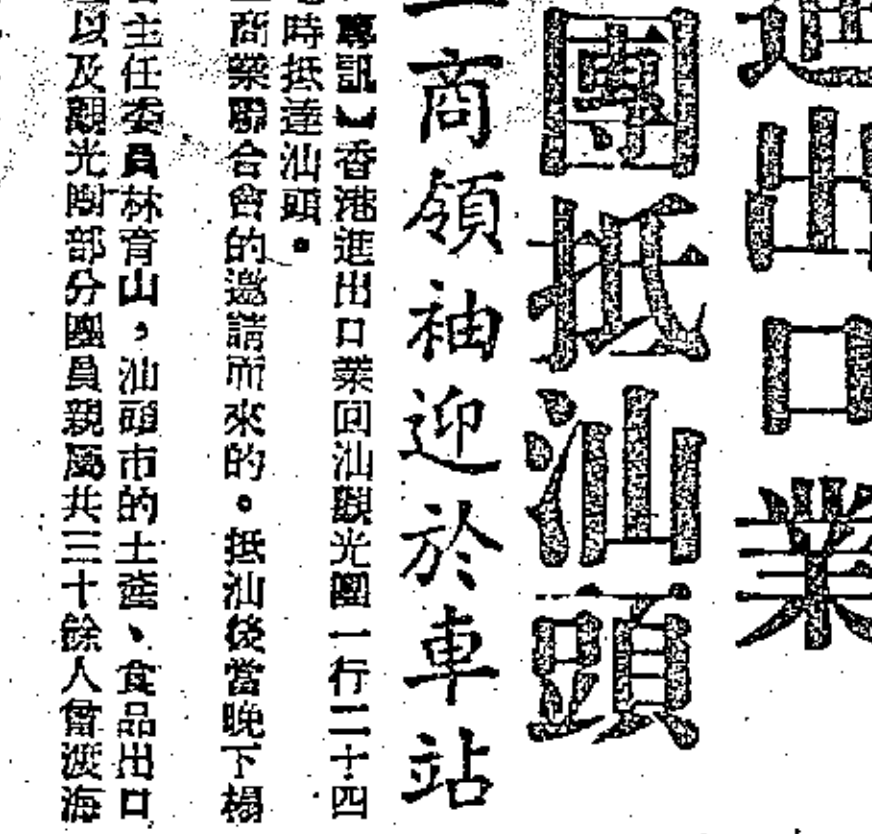 進出口業
團抵汕頭
商領袖迎於車站
專訊】香港進出口業回汕觀光團一行二十四
時抵達汕頭。
商業聯合會的邀請而來的。抵汕後當晚下榻
主任委員林育山,汕頭市的土產、食品出口
以及觀光團部分團員親屬共三十餘人曾渡海